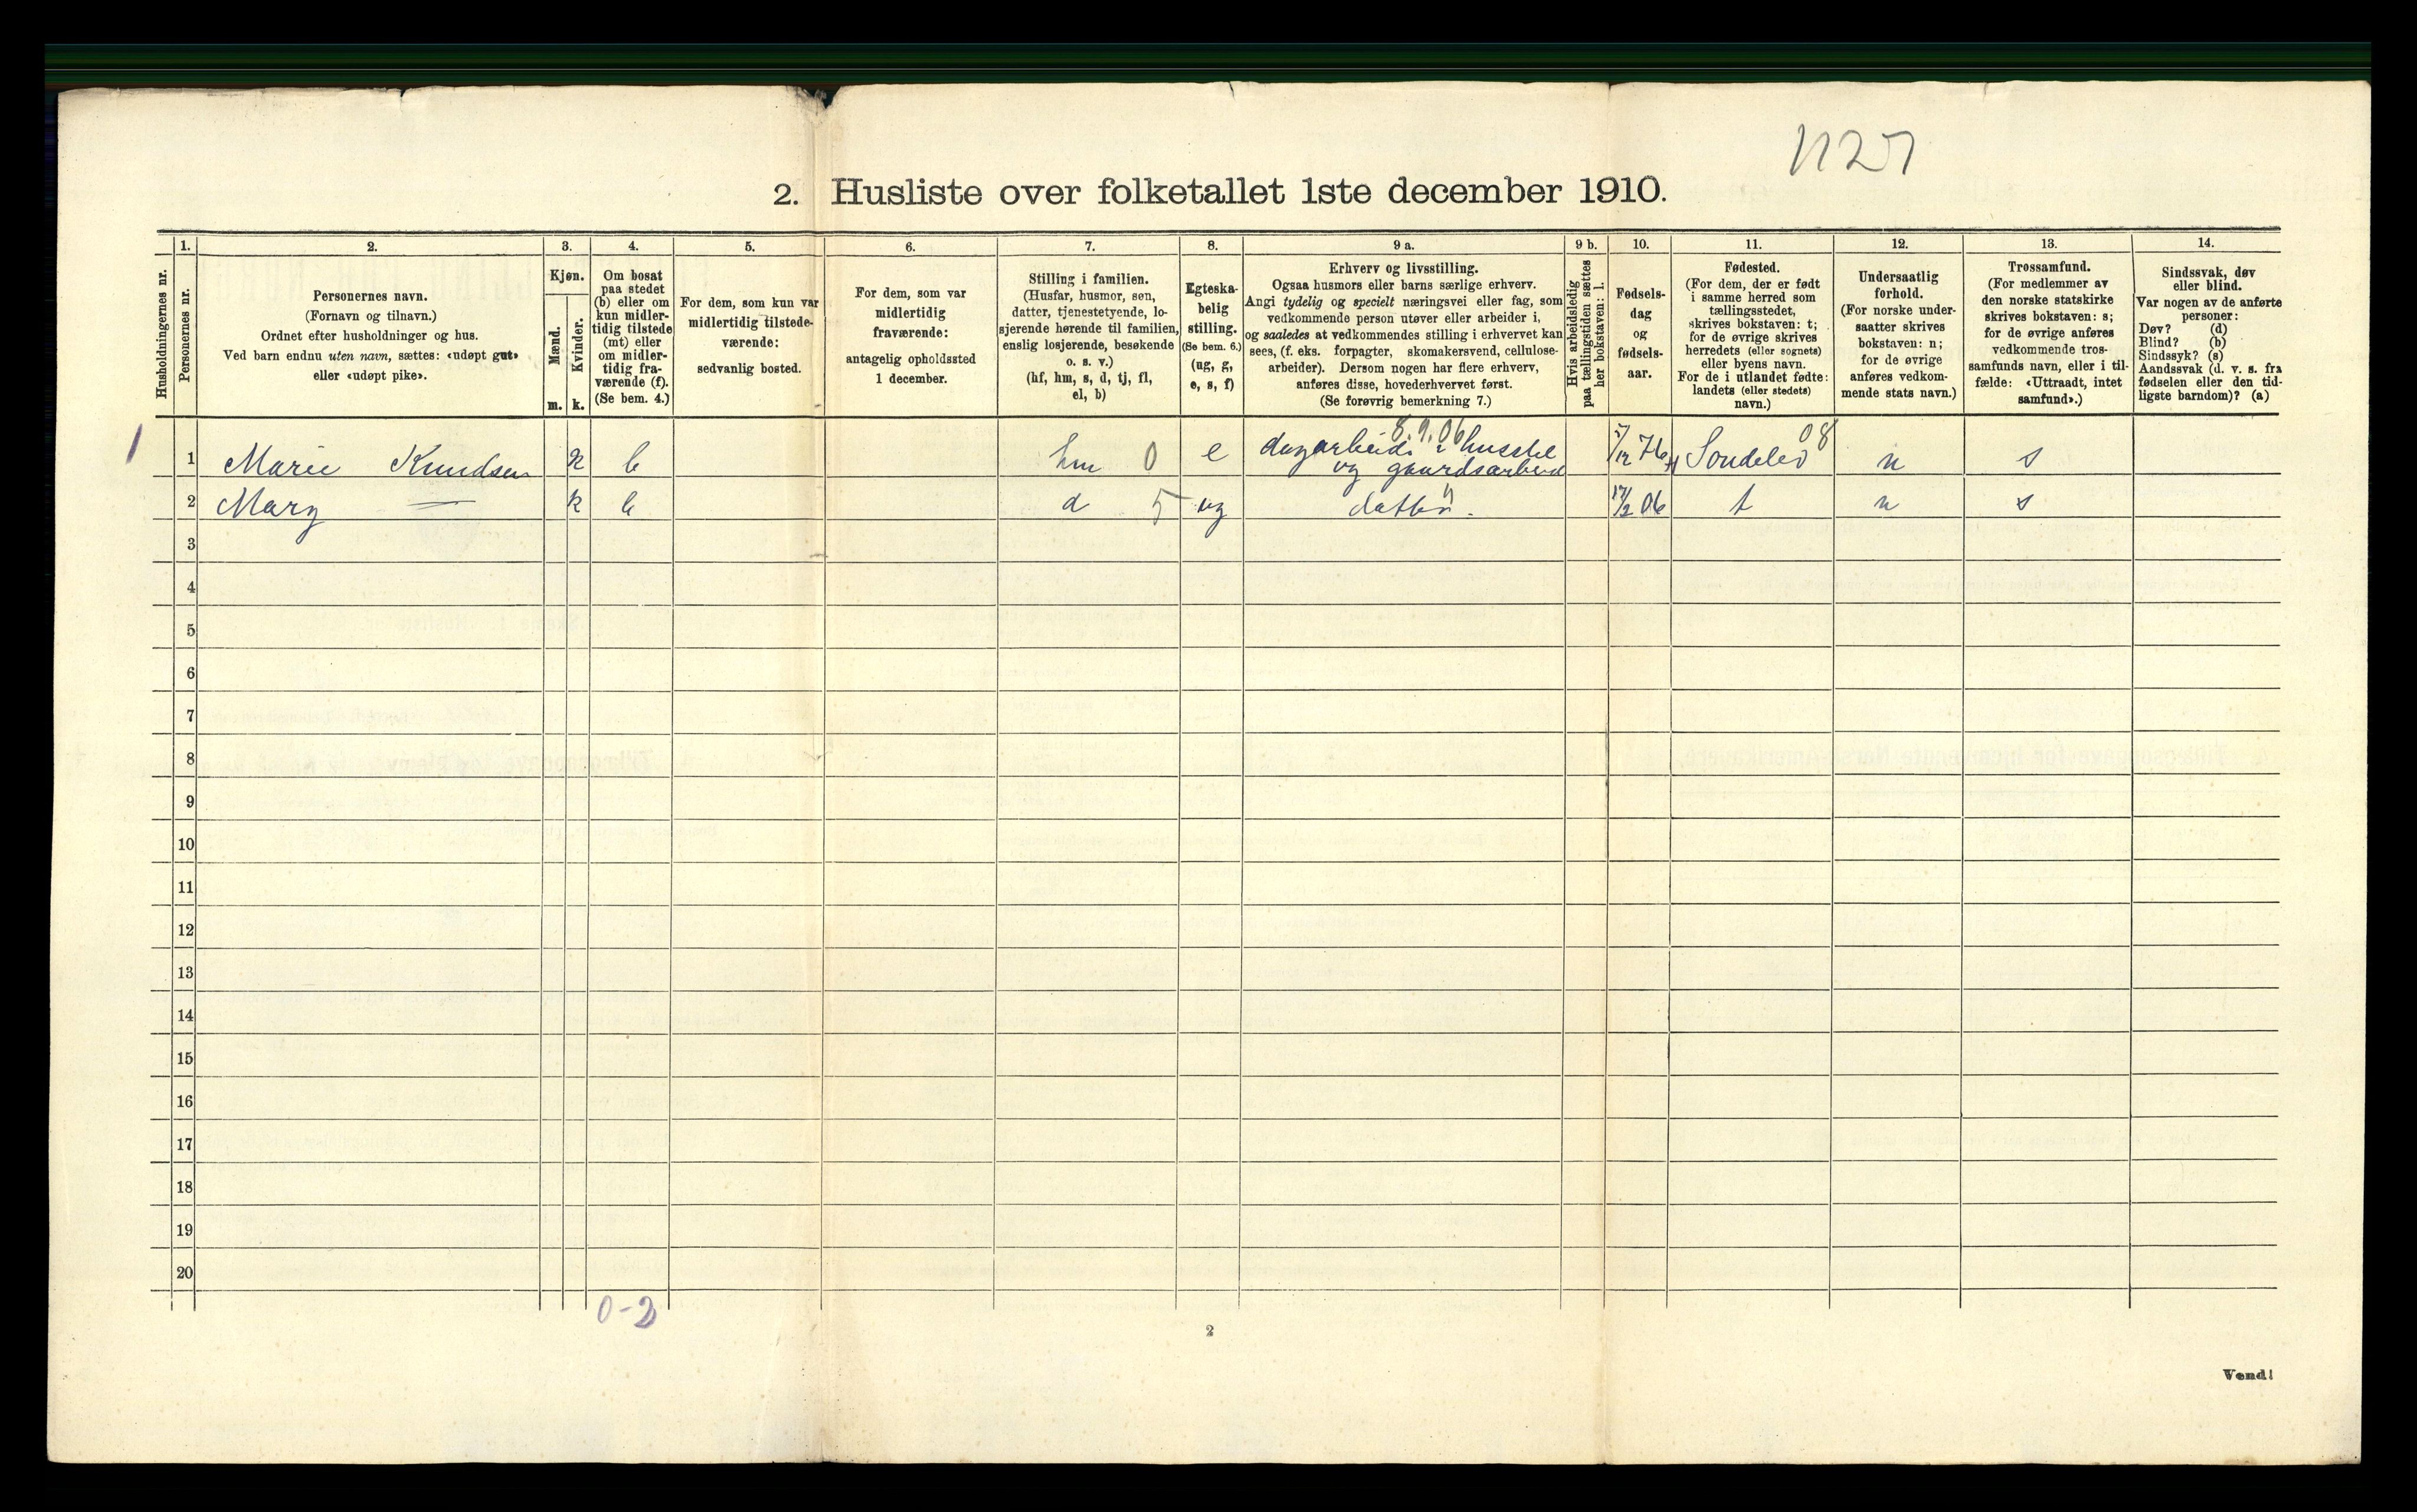 1127
2. Husliste over folketallet 1ste december 1910.
Husholdningernes nr.
1.
Personernes nr.
2.
Personernes navn.
(Fornavn og tilnavn.)
Ordnet efter husholdninger og hus.
Ved barn endnu uten navn, sættes: «udøpt gut»
eller «udøpt pike».
3.
Kjøn.
Mænd.
Kvinder.
m. k.
4.
Om bosat
paa stedet
(b) eller om
kun midler-
tidig tilstede
(mt) eller
om midler-
tidig fra-
værende (f).
(Se bem. 4.)
5.
For dem, som kun var
midlertidig tilstede-
værende:
sedvanlig bosted.
6.
For dem, som var
midlertidig
fraværende:
antagelig opholdssted
1 december.
7.
Stilling i familien.
(Husfar, husmor, søn,
datter, tjenestetyende, lo-
sjerende hørende til familien,
enslig losjerende, besøkende
o. s. v.)
(hf, hm, s, d, tj, fl,
el, b)
8.
Egteska-
belig
stilling.
(Se bem. 6.)
(ug, g,
e, s, f)
9 a.
Erhverv og livsstilling.
Ogsaa husmors eller barns særlige erhverv.
Angi tydelig og specielt næringsvei eller fag, som
vedkommende person utøver eller arbeider i,
og saaledes at vedkommendes stilling i erhvervet kan
sees, (f. eks. forpagter, skomakersvend, cellulose-
arbeider). Dersom nogen har flere erhverv,
anføres disse, hovederhvervet først.
(Se forøvrig bemerkning 7.)
9 b.
Hvis arbeidsledig
paa tællingstiden sættes
her bokstaven: l.
10.
Fødsels-
dag
og
fødsels-
aar.
11.
Fødested.
(For dem, der er født
i samme herred som
tællingsstedet,
skrives bokstaven: t;
for de øvrige skrives
herredets (eller sognets)
eller byens navn.
For de i utlandet fødte:
landets (eller stedets)
navn.)
12.
Undersaatlig
forhold.
(For norske under-
saatter skrives
bokstaven: n;
for de øvrige
anføres vedkom-
mende stats navn.)
13.
Trossamfund.
(For medlemmer av
den norske statskirke
skrives bokstaven: s;
for de øvrige anføres
vedkommende tros-
samfunds navn, eller i til-
fælde: «Uttraadt, intet
samfund».)
14.
Sindssvak, døv
eller blind.
Var nogen av de anførte
personer:
Døv? (d)
Blind? (b)
Sindssyk? (s)
Aandssvak (d. v. s. fra
fødselen eller den tid-
ligste barndom)? (a)
8.9.06 08
1 1 Marie Knudsen k b hm 0 e dagarbeide i husstel 7/12 76 Søndeled n s
og gaardsarbeid
2 Mary — k b d 5 ug datter. 17/2 06 t n s
3
4
5
6
7
8
9
10
11
12
13
14
15
16
17
18
19
20
0-2
2
Vend!